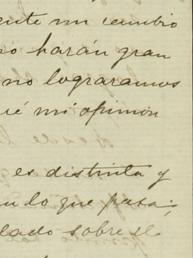 ente mi cambio
no harán gran
no lograramos
ré mi opinión
es distinta y
en lo que pasa;
lado sobre el